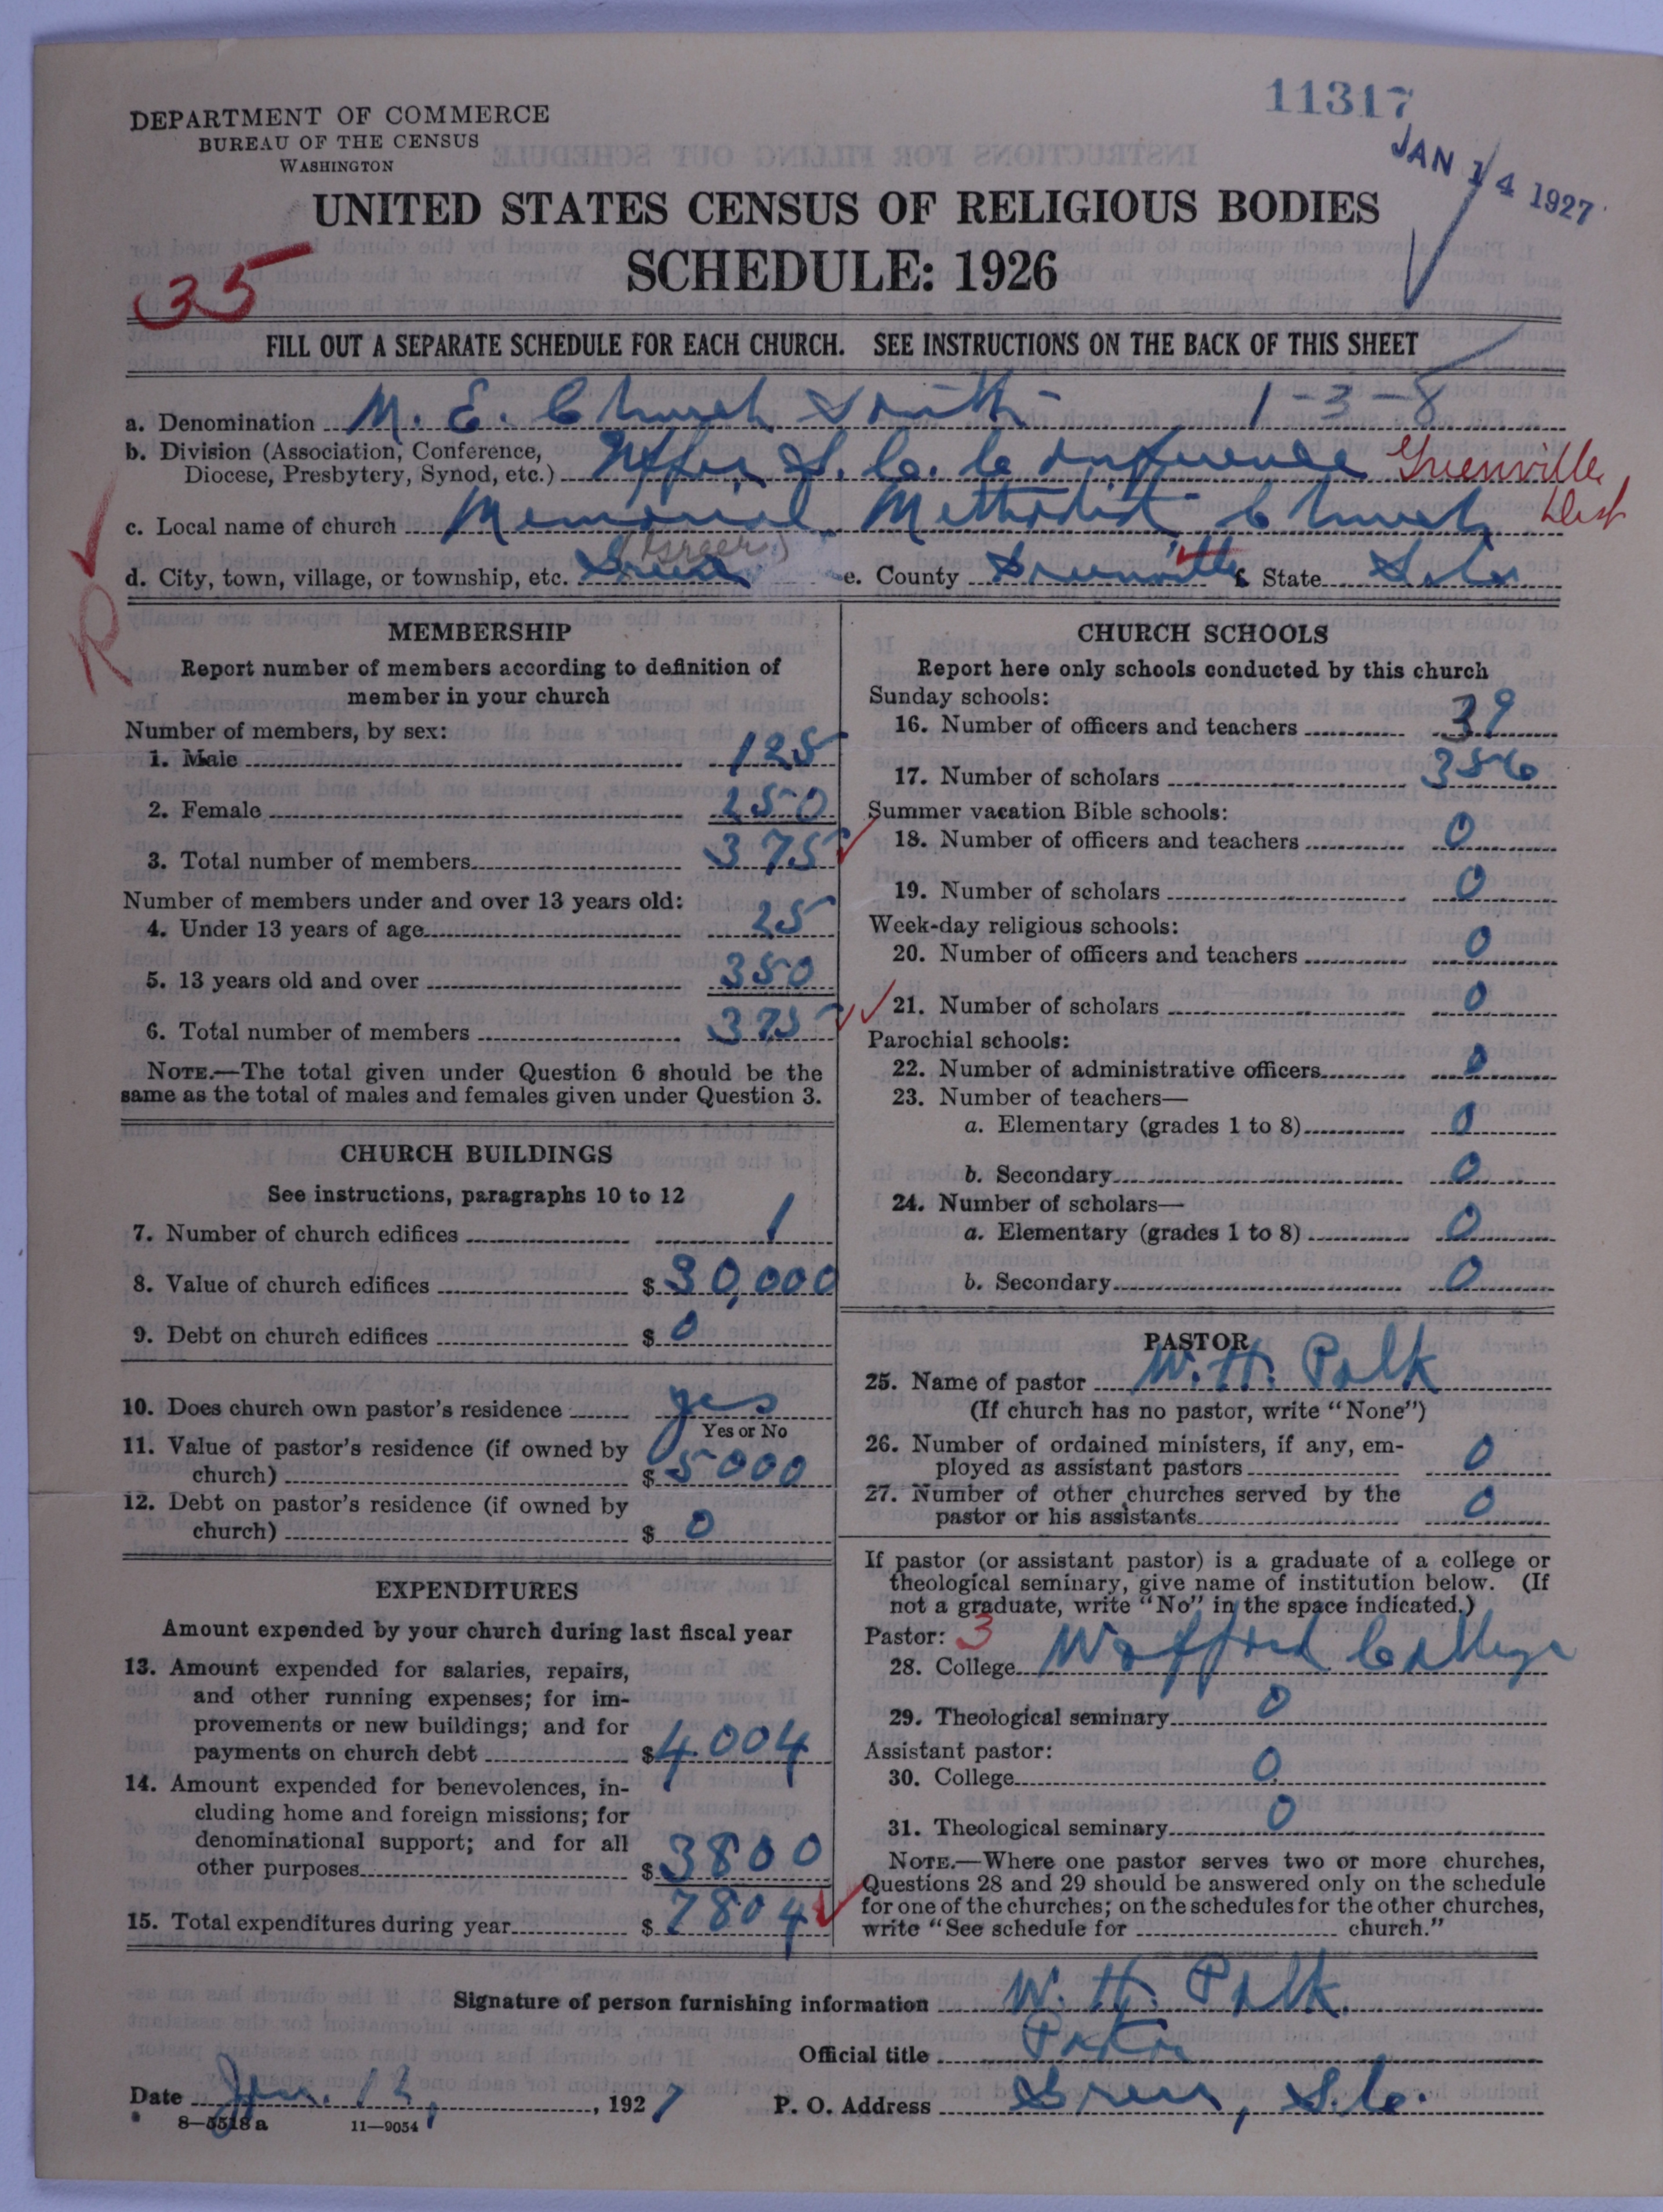 11317
JAN 14 1927
DEPARTMENT OF COMMERCE
BUREAU OF THE CENSUS
WASHINGTON
UNITED STATES CENSUS OF RELIGIOUS BODIES
SCHEDULE: 1926
35
FILL OUT A SEPARATE SCHEDULE FOR EACH CHURCH. SEE INSTRUCTIONS ON THE BACK OF THIS SHEET
a. Denomination M. E. Church South 1-3-8
b. Division (Association, Conference,
Diocese, Presbytery, Synod, etc.) Upper S. C. Conference Greenville Dist
c. Local name of church Memorial Methodist Church
d. City, town, village, or township, etc. Greer (Greer) e. County Greenville f. State S. C.
R
MEMBERSHIP
Report number of members according to definition of
member in your church
Number of members, by sex:
1. Male 125
2. Female 250
3. Total number of members 375
Number of members under and over 13 years old:
4. Under 13 years of age 25
5. 13 years old and over 350
6. Total number of members 375
NOTE.—The total given under Question 6 should be the
same as the total of males and females given under Question 3.
CHURCH BUILDINGS
See instructions, paragraphs 10 to 12
7. Number of church edifices 1
8. Value of church edifices $ 30,000
9. Debt on church edifices $ 0
10. Does church own pastor's residence yes
Yes or No
11. Value of pastor's residence (if owned by
church) $ 5000
12. Debt on pastor's residence (if owned by
church) $ 0
EXPENDITURES
Amount expended by your church during last fiscal year
13. Amount expended for salaries, repairs,
and other running expenses; for im-
provements or new buildings; and for
payments on church debt $ 4004
14. Amount expended for benevolences, in-
cluding home and foreign missions; for
denominational support; and for all
other purposes $ 3800
15. Total expenditures during year $ 7804
CHURCH SCHOOLS
Report here only schools conducted by this church
Sunday schools:
16. Number of officers and teachers 39
17. Number of scholars 356
Summer vacation Bible schools:
18. Number of officers and teachers 0
19. Number of scholars 0
Week-day religious schools:
20. Number of officers and teachers 0
21. Number of scholars 0
Parochial schools:
22. Number of administrative officers 0
23. Number of teachers—
a. Elementary (grades 1 to 8) 0
b. Secondary 0
24. Number of scholars—
a. Elementary (grades 1 to 8) 0
b. Secondary 0
PASTOR
25. Name of pastor W. H. Polk
(If church has no pastor, write "None")
26. Number of ordained ministers, if any, em-
ployed as assistant pastors 0
27. Number of other churches served by the
pastor or his assistants 0
If pastor (or assistant pastor) is a graduate of a college or
theological seminary, give name of institution below. (If
not a graduate, write "No" in the space indicated.)
Pastor: 3
28. College Wofford College
29. Theological seminary 0
Assistant pastor:
30. College 0
31. Theological seminary 0
NOTE.—Where one pastor serves two or more churches,
Questions 28 and 29 should be answered only on the schedule
for one of the churches; on the schedules for the other churches,
write "See schedule for church."
Signature of person furnishing information W. H. Polk
Official title Pastor
Date Jan. 13, 1927 P. O. Address Greer, S. C.
8—5518a 11—9054